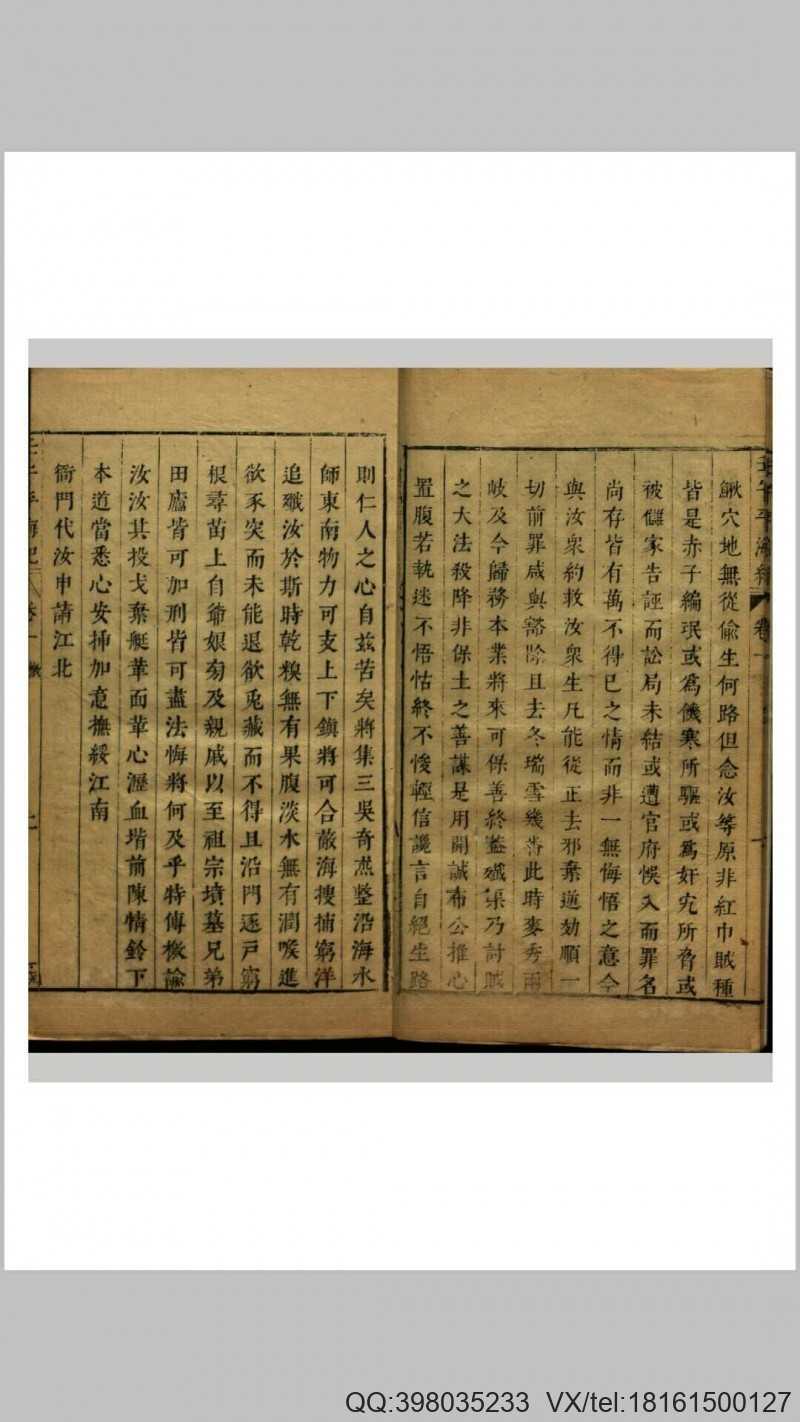 鰍穴地無從偷生何路但念汝等原非紅巾賊種
皆是赤子編氓或為饑寒所驅或為奸宄所脅或
被讎家告誣而訟局未結或遭官府悞入而罪名
尚存皆有萬不得已之情而非一無悔悟之意今
與汝衆約救汝衆生凡能從正去邪棄逆効順一
切前罪咸與豁除且去冬瑞雪幾番此時麥秀兩
岐及今歸務本業將來可保善終葢殲渠乃討賊
之大法殺降非保土之善謀是用開誠布公推心
置腹若執迷不悟怙終不悛輕信讒言自絕生路
則仁人之心自茲苦矣將集三吳奇杰整沿海水
師東南物力可支上下鎮將可合敵海搜捕窮洋
追殲汝於斯時乾糗無有果腹淡水無有潤喉進
欲豕突而未能退欲兎藏而不得且沿門逐戸窮
根尋苗上自爺娘旁及親戚以至祖宗墳墓兄弟
田廬皆可加刑皆可盡法悔將何及乎特傳檄諭
汝汝其投戈棄艇革面革心瀝血堦前陳情鈴下
本道當悉心安揷加意撫綏江南
衙門代汝申請江北
壬午平海紀 卷一
QQ:398035233 VX/tel:18161500127